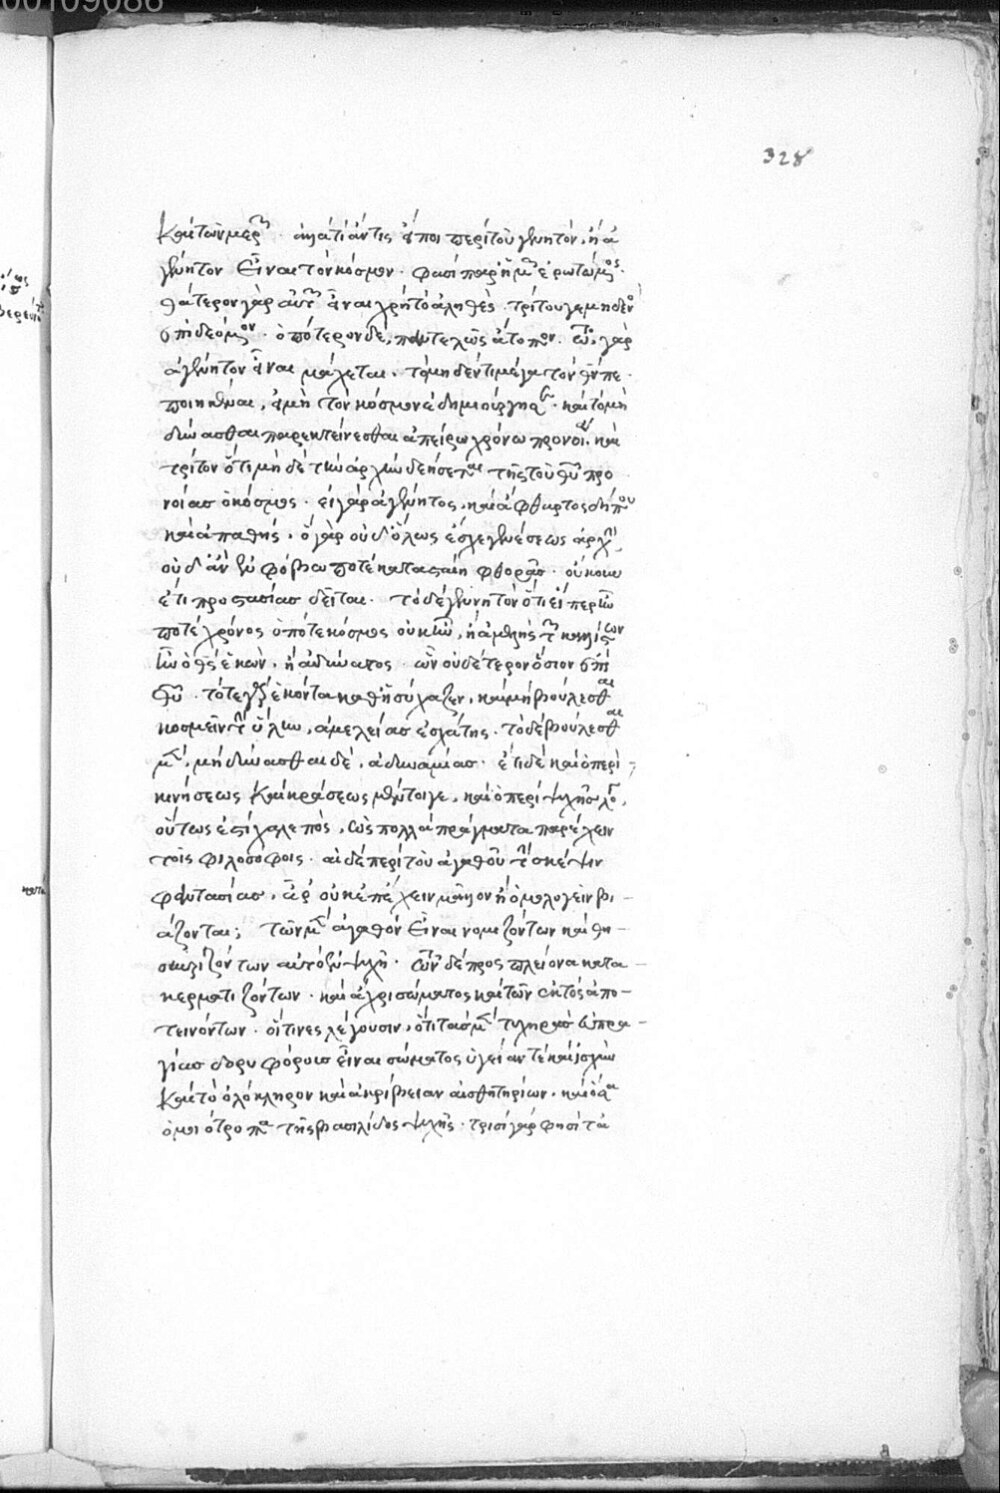 00109086
328
καὶ τῶν μερῶν. ἀλλὰ τί ἄν τις εἴποι περὶ τοῦ γενητὸν, ἢ ἀ
γένητον εἶναι τὸν κόσμον. φασὶ παρ' ἡμῶν ἐρωτώμενος.
θάτερον γὰρ αὐτῶν εἶναι χρὴ τὸ ἀληθὲς. τρίτου γε μηδενὸς
ἐπιδεόμενον. ὁπότερον δὲ, παντελῶς ἄτοπον. τὸ γὰρ
ἀγένητον εἶναι μάχεται. τὸ μηδέν τι μέγα τὸν θεὸν πε
ποιηκέναι, εἰ μὴ τὸν κόσμον ἐδημιούργησεν. καὶ τὸ μὴ
δύνασθαι παρεκτείνεσθαι ἀπείρω χρόνω πρόνοιαν. καὶ
τρίτον ὅτι μὴ δὲ τὴν ἀρχὴν δεήσεται τῆς τοῦ θεοῦ προ
νοίας ὁ κόσμος. εἰ γὰρ ἀγένητος, καὶ ἄφθαρτος δήπου
καὶ ἀπαθής. ὃ γὰρ οὐδ' ὅλως ἔσχε γενέσεως ἀρχὴν
οὐδ' ἂν ἐν φόβω ποτὲ καταςαίη φθορᾶς. οὔκουν
ἔτι προςασίας δεῖται. τὸ δὲ γενητὸν ὅτι εἴπερ ἦν
ποτὲ χρόνος ὁπότε κόσμος οὐκ ἦν, ἢ ἀμελὴς τῶν καλλίςων
ἦν ὁ θεὸς ἑκὼν, ἢ ἀδύνατος. ὧν οὐδέτερον ὅσιον ἐπὶ
θεοῦ. τό τε γὰρ ἑκόντα καθησυχάζειν, καὶ μὴ βούλεσθαι
κοσμεῖν τὴν ὕλην, ἀμελείας ἐσχάτης. τὸ δὲ βούλεσθαι
μὲν, μὴ δύνασθαι δὲ, ἀδυναμίας. ἔτι δὲ καὶ ὁ περὶ
κινήσεως καὶ κράσεως μέντοι γε, καὶ ὁ περὶ ψυχῆς λόγος,
οὕτως ἐςὶ χαλεπός, ὡς πολλὰ πράγματα παρέχειν
τοῖς φιλοσόφοις. αἱ δὲ περὶ τοῦ ἀγαθοῦ τὴν σκέψιν
φαντασίας, ἆρ' οὐκ ἐπέχειν μᾶλλον ἢ ὁμολογεῖν βι-
άζονται; τῶν μὲν ἀγαθὸν εἶναι νομιζόντων καὶ θη-
σαυριζόντων αὐτὸ ἐν ψυχῇ. τῶν δὲ πρὸς πλείονα κατα-
κερματιζόντων. καὶ ἄχρι σώματος καὶ τῶν ἐκτὸς ἀπο-
τεινόντων. οἵτινες λέγουσιν, ὅτι τὰς μὲν τυχηρὰς εὐπρα-
γίας δορυφόρους εἶναι σώματος ὑγείαν τὲ καὶ ἰσχὺν
καὶ τὸ ὁλόκληρον καὶ ἀκρίβειαν αἰσθητηρίων. καὶ ὅσα
ὁμοιότροπα τῆς βασιλίδος ψυχῆς. τρισὶ γάρ φησὶ τὰ